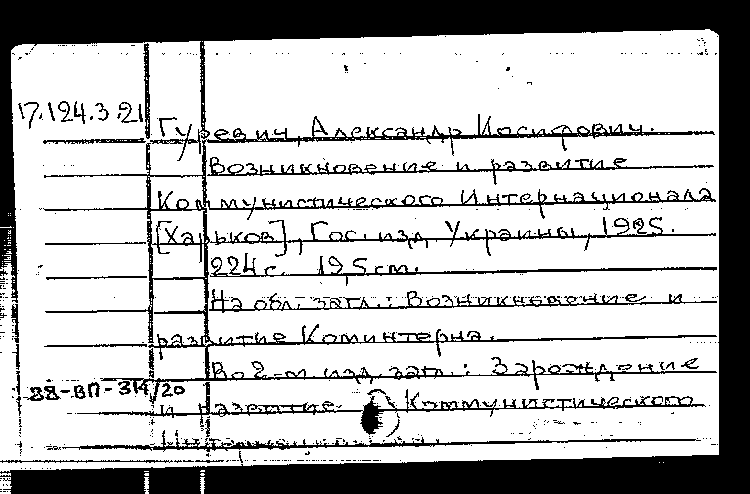 17.124.3.21
Гуревич, Александр Иосифович.
Возникновение и развитие
Коммунистического Интернационала
[Харьков], Гос. изд. Украины, 1925.
224 с. 19,5 см.
На обл. загл.: Возникновение и
развитие Коминтерна.
Во 2-м изд. загл.: Зарождение
88-ВП-314/20
и развитие Коммунистического
Интернационала.